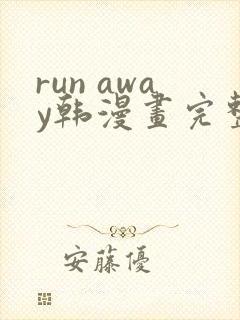 run awa
y韩漫畫完整
安藤優